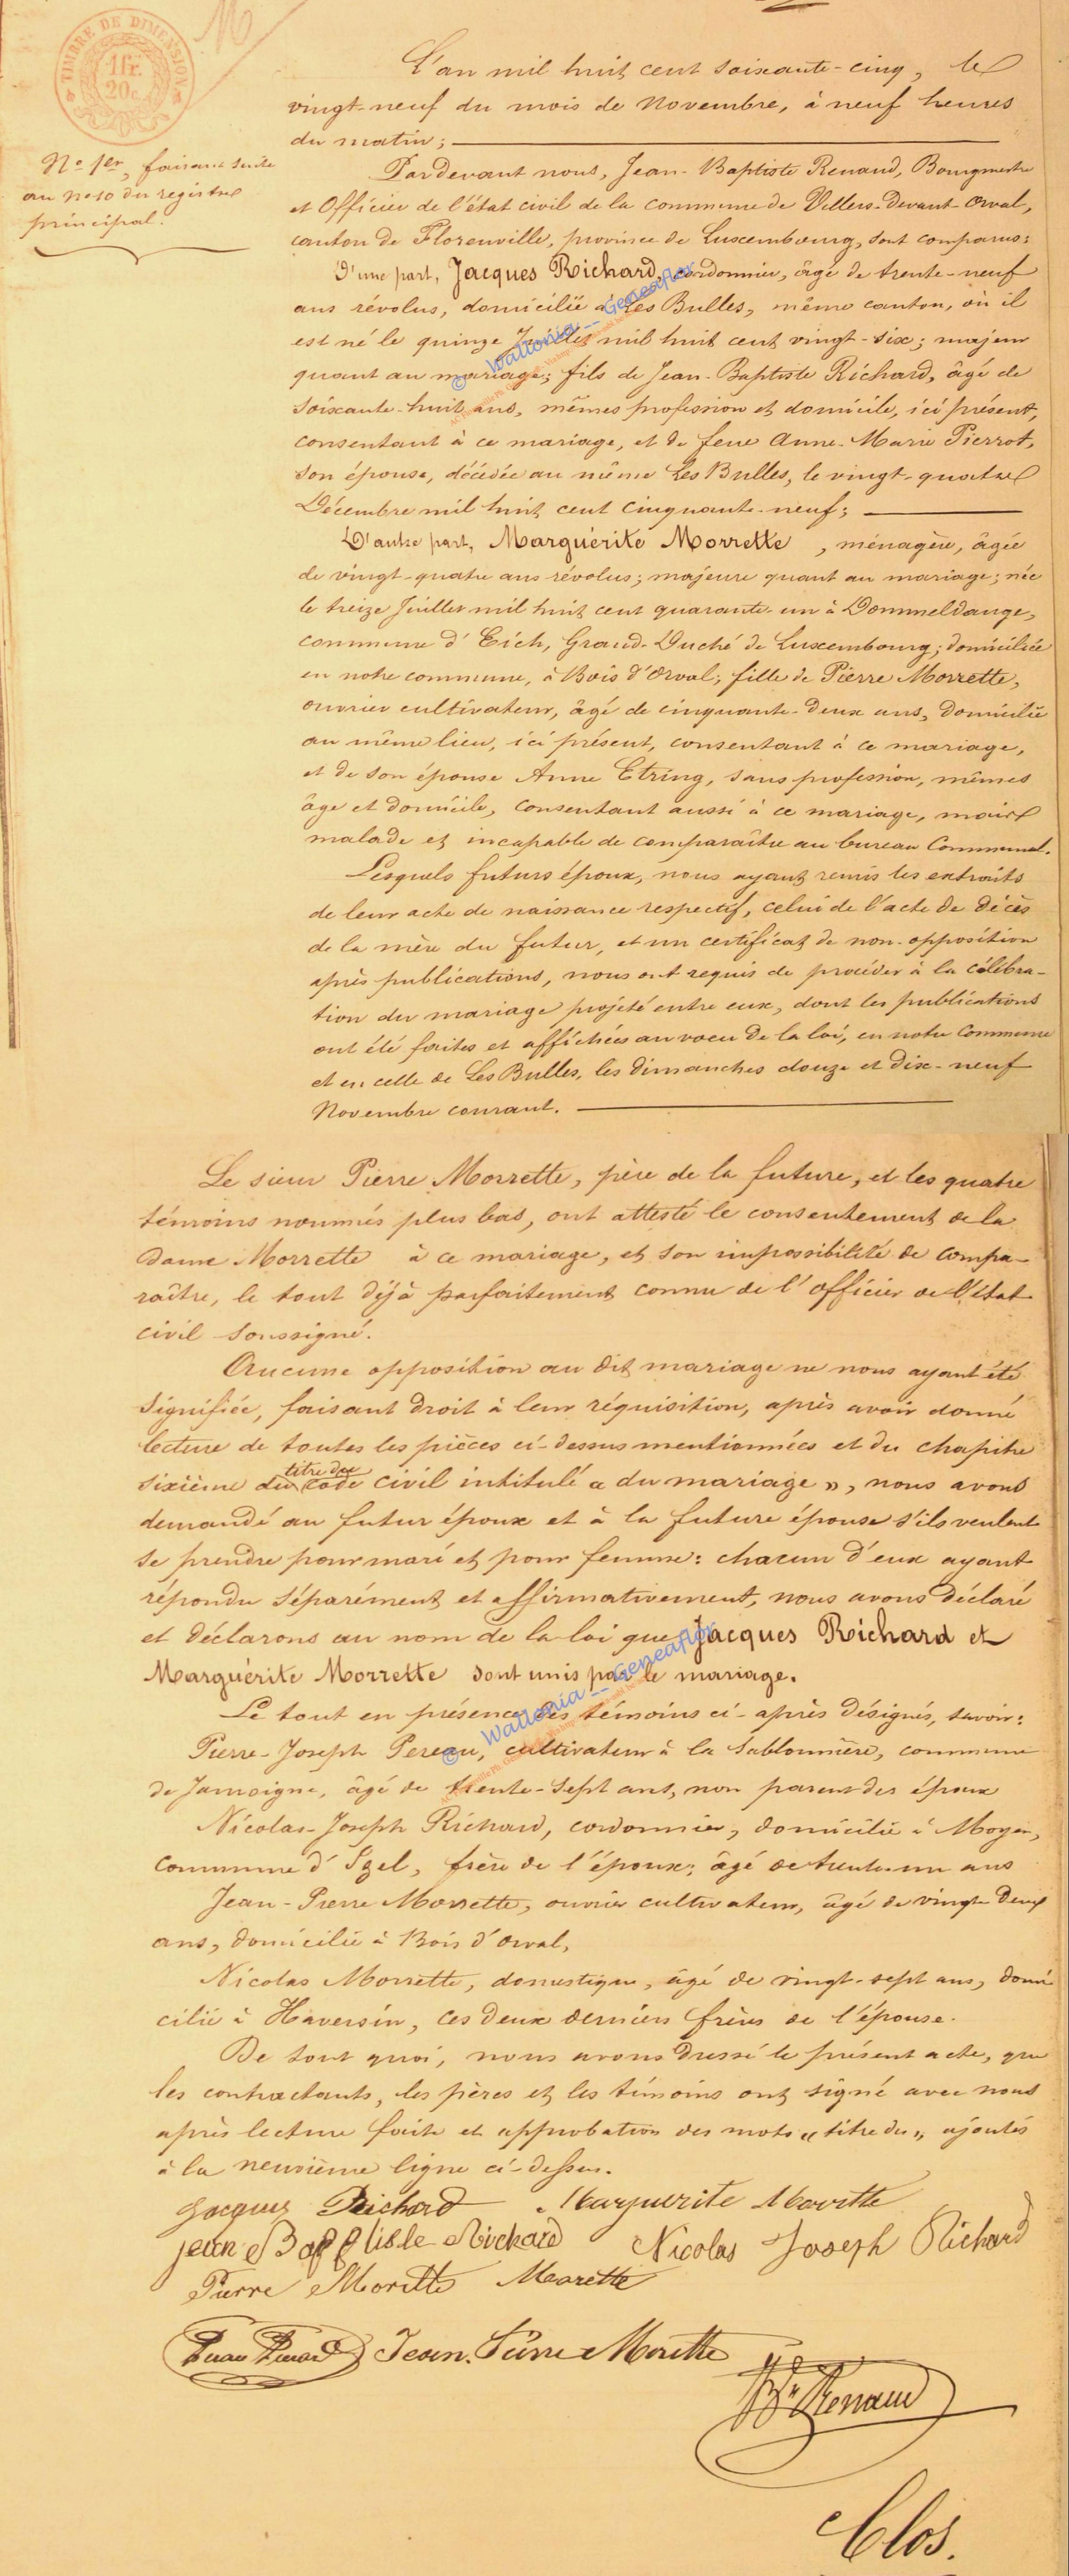 TIMBRE DE DIMENSION
1fr.
20c.
L'an mil huit cent soixante-cinq, le
vingt-neuf du mois de Novembre, à neuf heures
du matin;
No 1er, faisant suite
au no 10 du registre
principal.
Pardevant nous, Jean-Baptiste Renaud, Bourgmestre
et Officier de l'état civil de la commune de Villers-Devant-Orval,
canton de Florenville, province de Luxembourg, sont comparus:
D'une part, Jacques Richard, cordonnier, âgé de trente-neuf
ans révolus, domicilié à Les Bulles, même canton, où il
est né le quinze Juillet mil huit cent vingt-six; majeur
quant au mariage; fils de Jean-Baptiste Richard, âgé de
soixante-huit ans, mêmes profession et domicile, ici présent,
consentant à ce mariage, et de feue Anne-Marie Pierrot,
son épouse, décédée au même Les Bulles, le vingt-quatre
Décembre mil huit cent cinquante-neuf;
D'autre part, Marguérite Morrette, ménagère, âgée
de vingt-quatre ans révolus; majeure quant au mariage; née
le treize Juillet mil huit cent quarante-un à Dommeldange,
commune d'Eich, Grand-Duché de Luxembourg; domiciliée
en notre commune, à Bois d'Orval; fille de Pierre Morrette,
ouvrier cultivateur, âgé de cinquante-deux ans, domicilié
au même lieu, ici présent, consentant à ce mariage,
et de son épouse Anne Etring, sans profession, mêmes
âge et domicile, consentant aussi à ce mariage, mais
malade et incapable de comparaître au bureau Communal.
Lesquels futurs époux, nous ayant remis les extraits
de leur acte de naissance respectif, celui de l'acte de décès
de la mère du futur, et un certificat de non-opposition
après publications, nous ont requis de procéder à la célébra-
tion du mariage projeté entre eux, dont les publications
ont été faites et affichées au voeu de la loi, en notre Commune
et en celle de Les Bulles, les dimanches douze et dix-neuf
Novembre courant.
Le sieur Pierre Morrette, père de la future, et les quatre
témoins nommés plus bas, ont attesté le consentement de la
dame Morrette à ce mariage, et son impossibilité de compa-
raître, le tout déjà parfaitement connu de l'officier de l'état
civil soussigné.
Aucune opposition au dit mariage ne nous ayant été
signifiée, faisant droit à leur réquisition, après avoir donné
lecture de toutes les pièces ci-dessus mentionnées et du chapitre
titre du
sixième du code civil intitulé « du mariage », nous avons
demandé au futur époux et à la future épouse s'ils veulent
se prendre pour mari et pour femme: chacun d'eux ayant
répondu séparément et affirmativement, nous avons déclaré
et déclarons au nom de la loi que Jacques Richard et
Marguérite Morrette sont unis par le mariage.
Le tout en présence des témoins ci-après désignés, savoir:
Pierre-Joseph Pereau, cultivateur à la Sablonnière, commune
de Jamoigne, âgé de trente-sept ans, non parent des époux
Nicolas-Joseph Richard, cordonnier, domicilié à Moyen,
commune d'Izel, frère de l'époux; âgé de trente-un ans
Jean-Pierre Morrette, ouvrier cultivateur, âgé de vingt-deux
ans, domicilié à Bois d'Orval,
Nicolas Morrette, domestique, âgé de vingt-sept ans, domi-
cilié à Haversin, ces deux derniers frères de l'épouse.
De tout quoi, nous avons dressé le présent acte, que
les contractants, les pères et les témoins ont signé avec nous
après lecture faite et approbation des mots « titre du » ajoutés
à la neuvième ligne ci-dessus.
Jacques Richard Marguerite Morette
jean Baptiste Richard Nicolas Joseph Richard
Pierre Morette Morette
Jean-Pierre Morette
Bte Renaud
Clos.
© Wallonia __ Geneaflor
© Wallonia __ Geneaflor